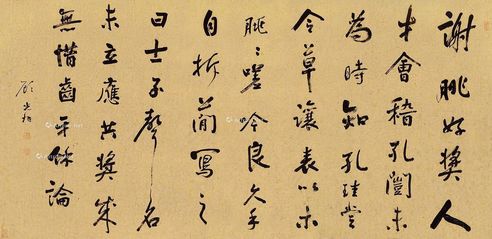 謝朓好獎人
才會稽孔闓未
為時知孔珪嘗
令草讓表以示
朓〻嗟吟良久手
自折簡寫之
曰士子聲名
未立應共獎成
無惜齒牙餘論